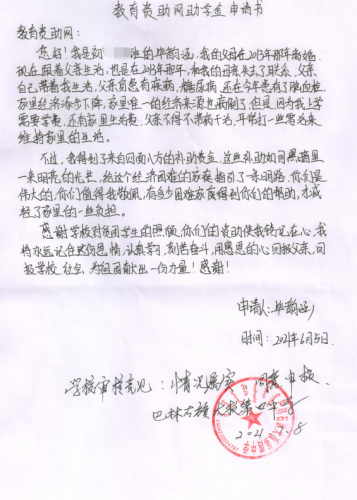 教育资助网助学金申请书
教育资助网：
您好！我是初 法的毕韵涵，我的父母在2013年那年离婚，
现在跟着父亲生活，也是在2013年那年，和我的母亲失去了联系，父亲
自己带着我生活，父亲自己患有疾病，糖尿病，还在今年患有了脑血栓，
家里经济逐步下降，家里唯一的经济来源也病倒了但是，因为我上学
需要学费，还有家里生活费，父亲不得不带病干活，开始打一些零活来
维持家里的生活。
不过，我得到了来自四面八方的补助资金，这些补助如同黑暗里
一来明亮的光芒，给这个经济困难的家庭指引了一条明路，你们是
伟大的，你们值得我敬佩，有多少困难家庭得到你们的帮助，才减
轻了家里的一些负担。
感谢学校对贫困学生的照顾，你们的资助使我铭记在心，我
将永远记住这份恩情，认真学习，刻苦奋斗，用感恩的心回报父亲，回
报学校，社会，为祖国献出一份力量！感谢！
申请人：毕韵涵
时间：2021年6月5日
学校审核意见：情况属实 同意申报
巴林右旗大板第四中学
2021.7.8